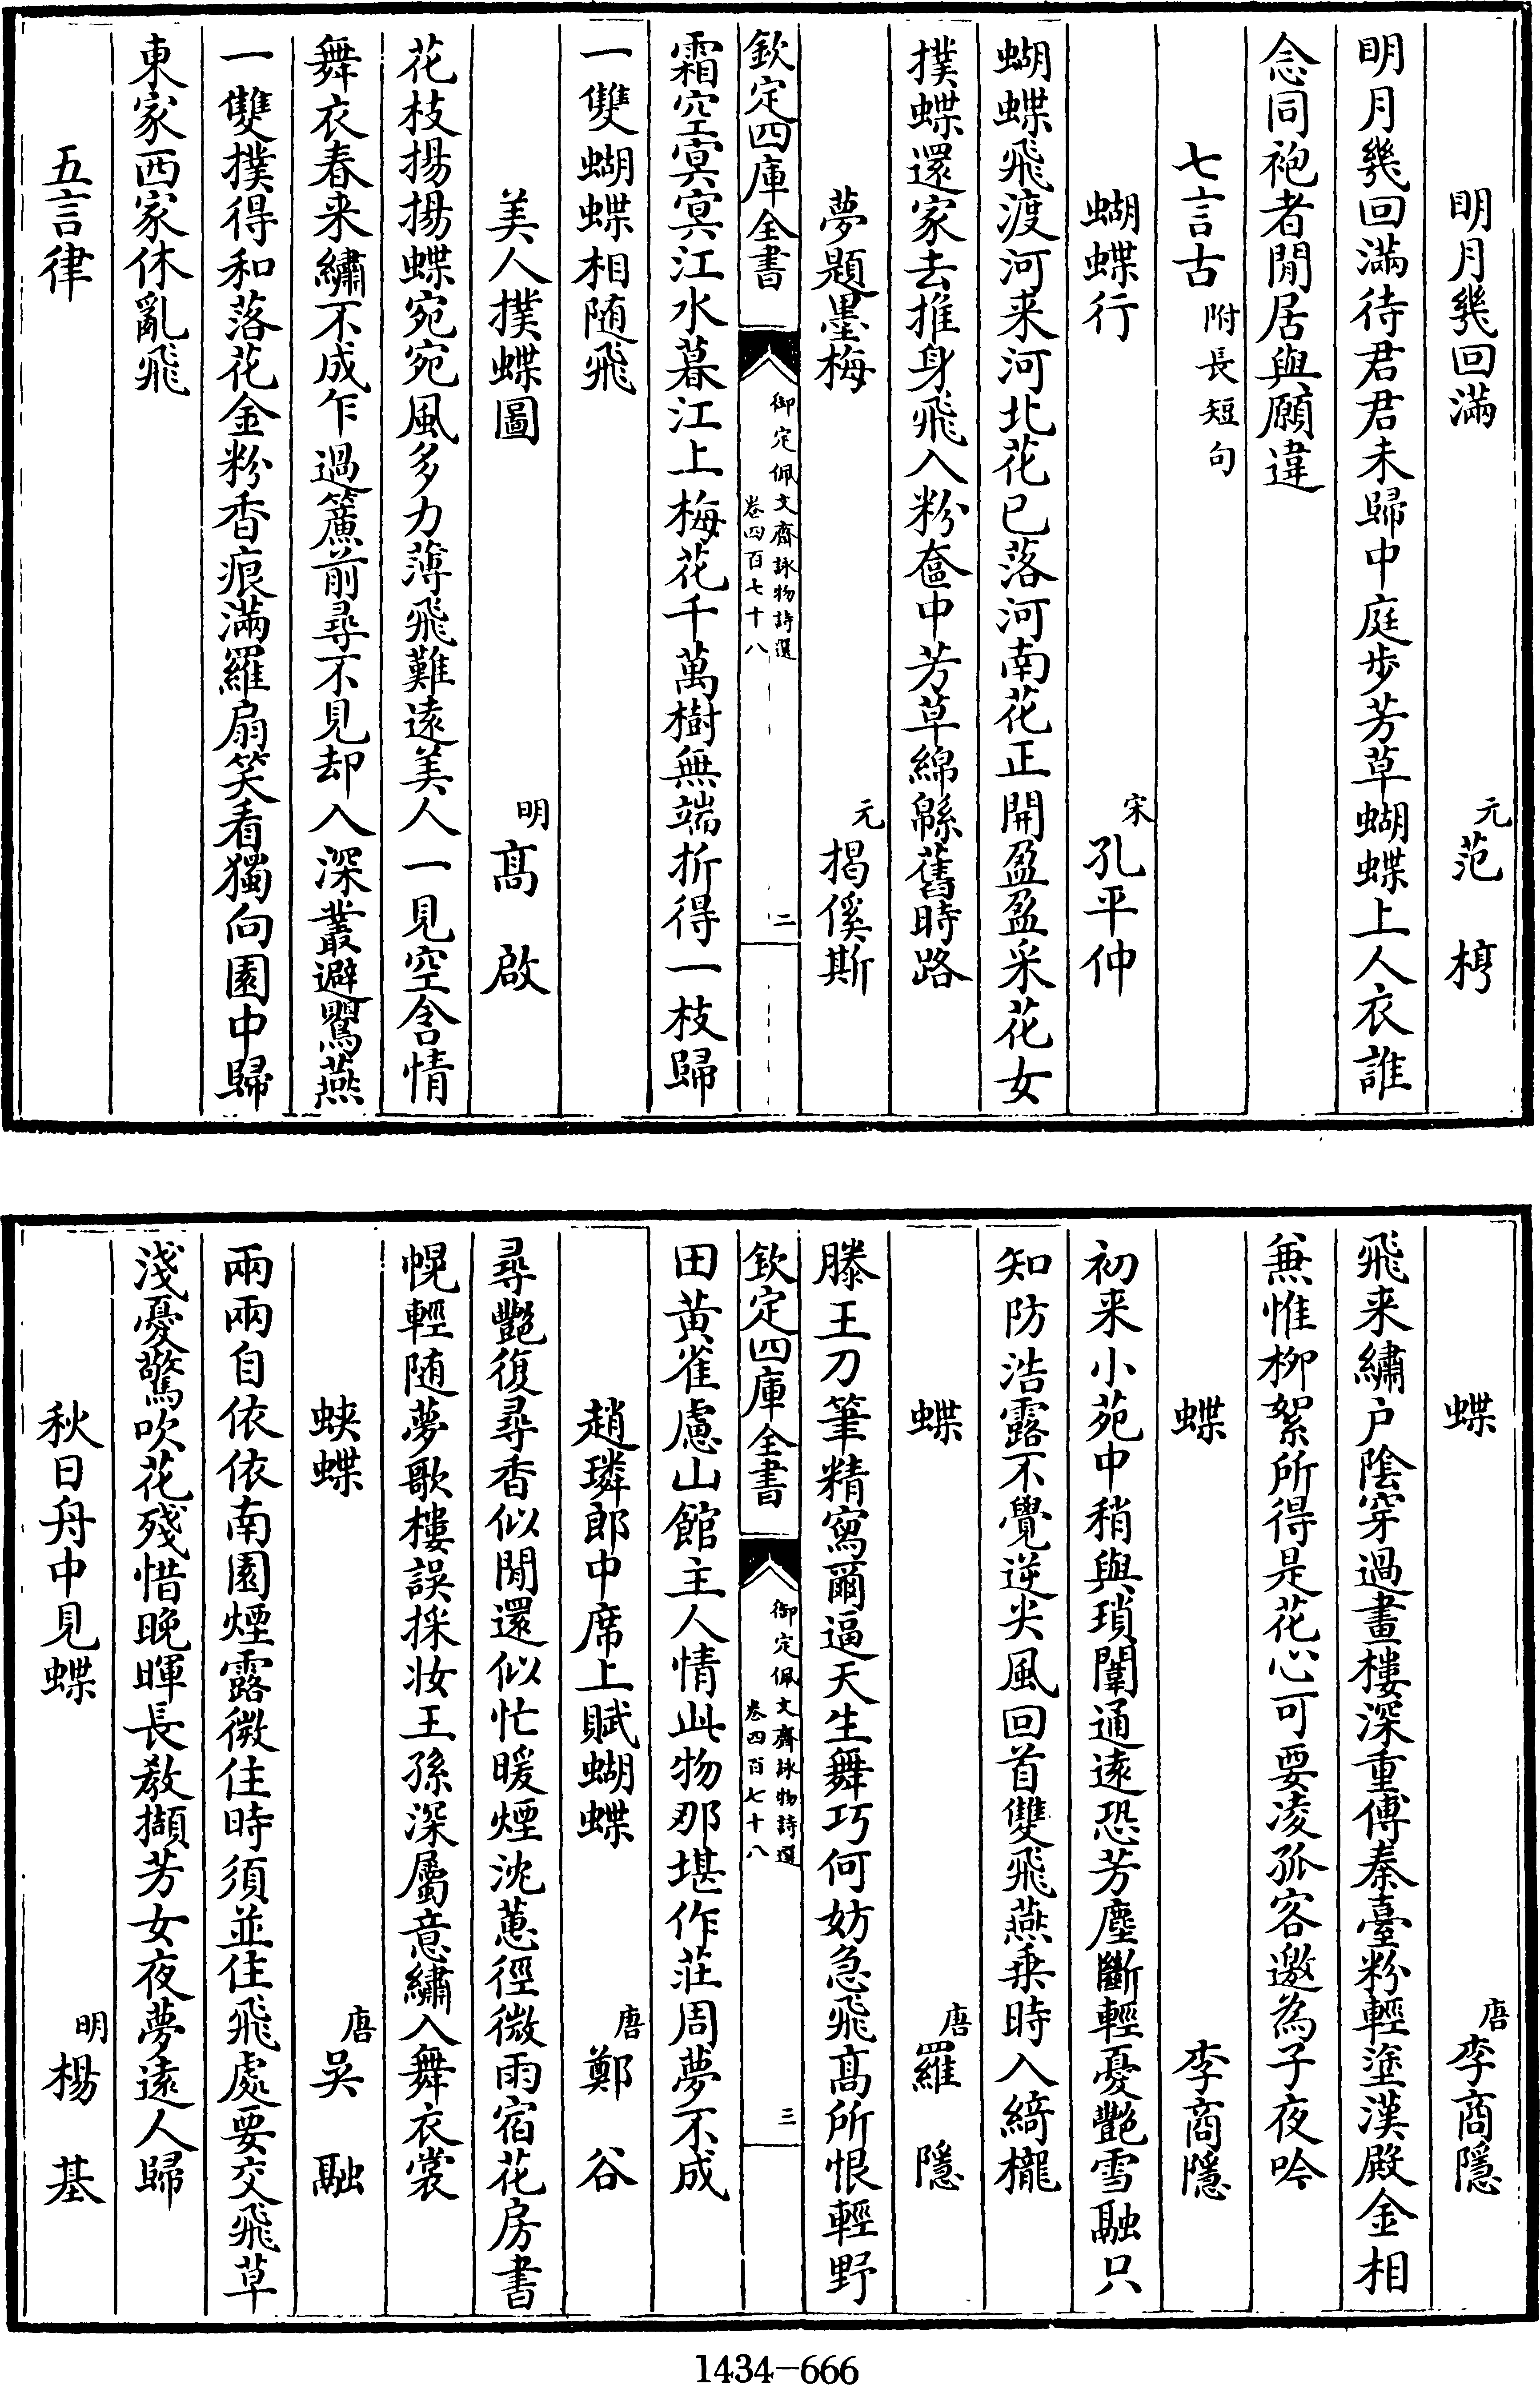 明月幾回滿 元范梈
明月幾回滿待君君未歸中庭步芳草蝴蝶上人衣誰
念同袍者閒居與願違
七言古附長短句
蝴蝶行 宋孔平仲
蝴蝶飛渡河来河北花已落河南花正開盈盈采花女
撲蝶還家去推身飛入粉奩中芳草綿緜舊時路
夢題墨梅 元揭傒斯
欽定四庫全書 御定佩文齋詠物詩選 卷四百七十八 二
霜空冥冥江水暮江上梅花千萬樹無端折得一枝歸
一雙蝴蝶相随飛
美人撲蝶圖 明高啟
花枝揚揚蝶宛宛風多力薄飛難遠美人一見空含情
舞衣春来繡不成乍過簾前尋不見却入深叢避鸎燕
一雙撲得和落花金粉香痕滿羅扇笑看獨向園中歸
東家西家休亂飛
五言律
蝶 唐李商隱
飛来繡户陰穿過畫樓深重傅秦臺粉輕塗漢殿金相
兼惟栁絮所得是花心可要凌孤客邀為子夜吟
蝶 李商隱
初来小苑中稍與瑣闈通遠恐芳塵斷輕憂艷雪融只
知防浩露不覺逆尖風回首雙飛燕乗時入綺櫳
蝶 唐羅隱
滕王刀筆精寫爾逼天生舞巧何妨急飛高所恨輕野
欽定四庫全書 御定佩文齋詠物詩選 卷四百七十八 三
田黄雀慮山館主人情此物那堪作莊周夢不成
趙璘郎中席上賦蝴蝶 唐鄭谷
尋艷復尋香似閒還似忙暖煙沈蕙徑微雨宿花房書
幌輕随夢歌樓誤採妆王孫深屬意繡入舞衣裳
蛺蝶 唐吳融
兩兩自依依南園煙露微住時須並住飛處要交飛草
淺憂驚吹花殘惜晚暉長教擷芳女夜夢遠人歸
秋日舟中見蝶 明楊基
1434-666